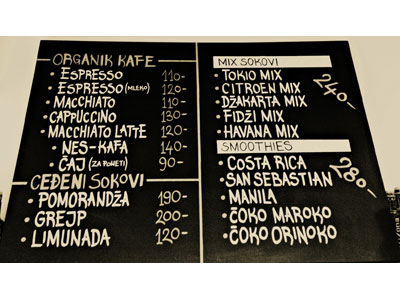 ORGANIK KAFE
• ESPRESSO 110-
• ESPRESSO (MLEKO) 120-
• MACCHIATO 110-
• CAPPUCCINO 130-
• MACCHIATO LATTE 120-
• NES-KAFA 140-
• ČAJ (ZA PONETI) 90-
CEĐENI SOKOVI
• POMORANDŽA 190-
• GREJP 200-
• LIMUNADA 120-
MIX SOKOVI
• TOKIO MIX
• CITROEN MIX
• DŽAKARTA MIX
• FIDŽI MIX
• HAVANA MIX
240-
SMOOTHIES
• COSTA RICA
• SAN SEBASTIAN
• MANILA
• ČOKO MAROKO
• ČOKO ORINOKO
280-